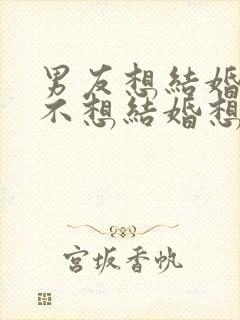 男友想結婚
不想結婚想
宮坂香帆